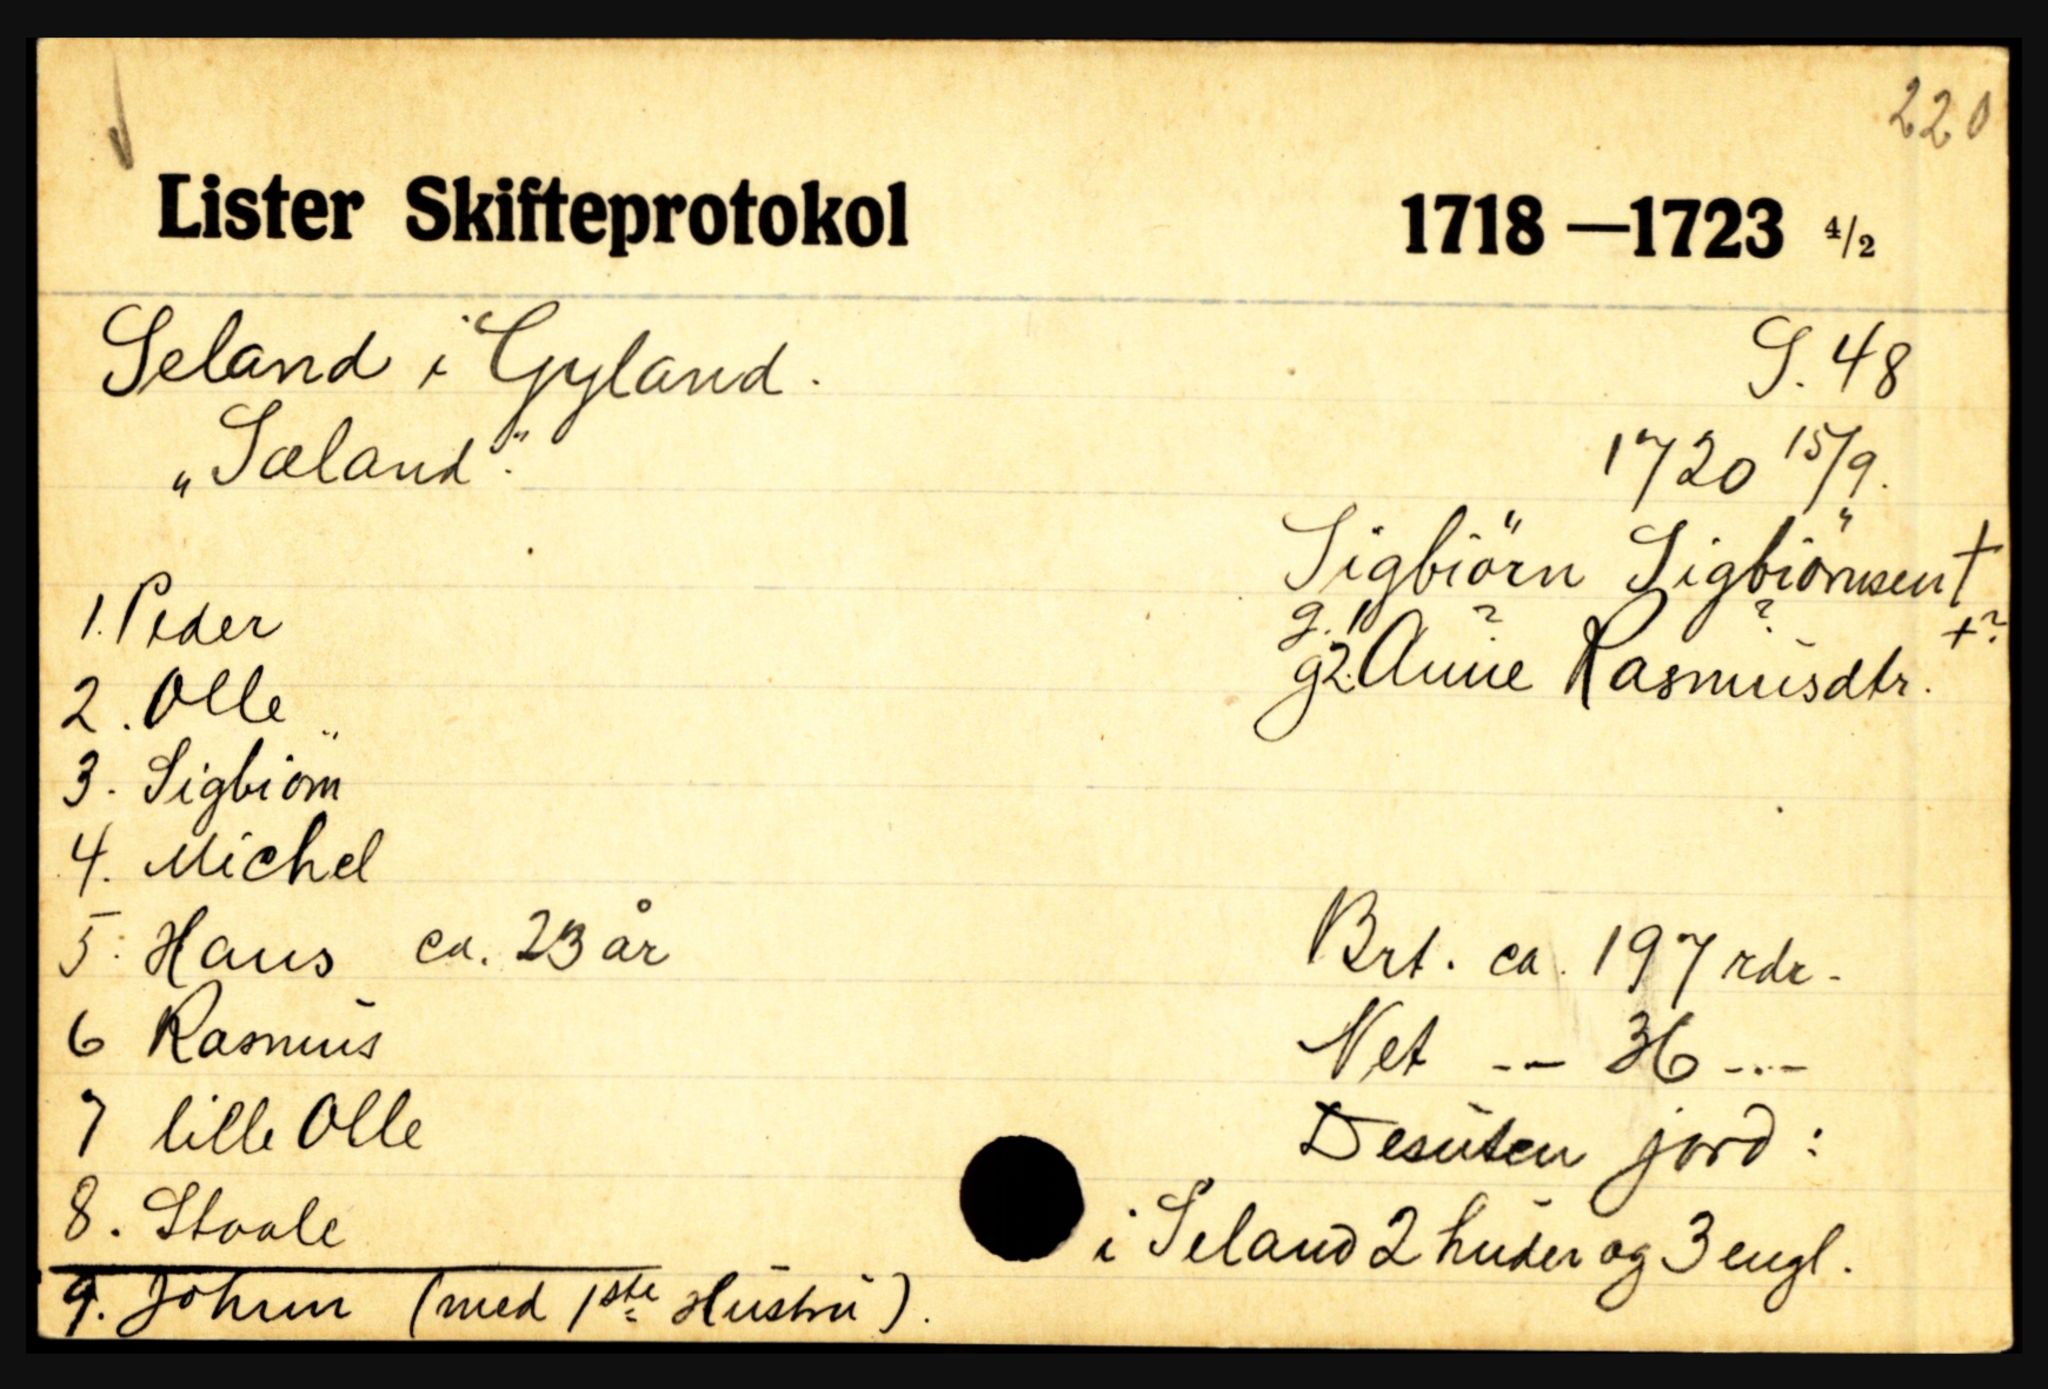 220
Lister Skifteprotokol 1718—1723 4/2
Seland i Gyland. S. 48
„Sæland". 1720 15/9.
Sigbiörn Sigbiörnsen +
g. 1 ? ? +?
g2. Anne Rasmusdtr.
1. Peder
2. Olle
3. Sigbiörn
4. Michel
5. Hans ca. 23 år
6 Rasmus
7 lille Olle
8. Staale
9. John (med 1ste Hustru).
Brt. ca. 197 rdr.
Net -- 36 ---
Desuten jord:
i Seland 2 huder og 3 engl.